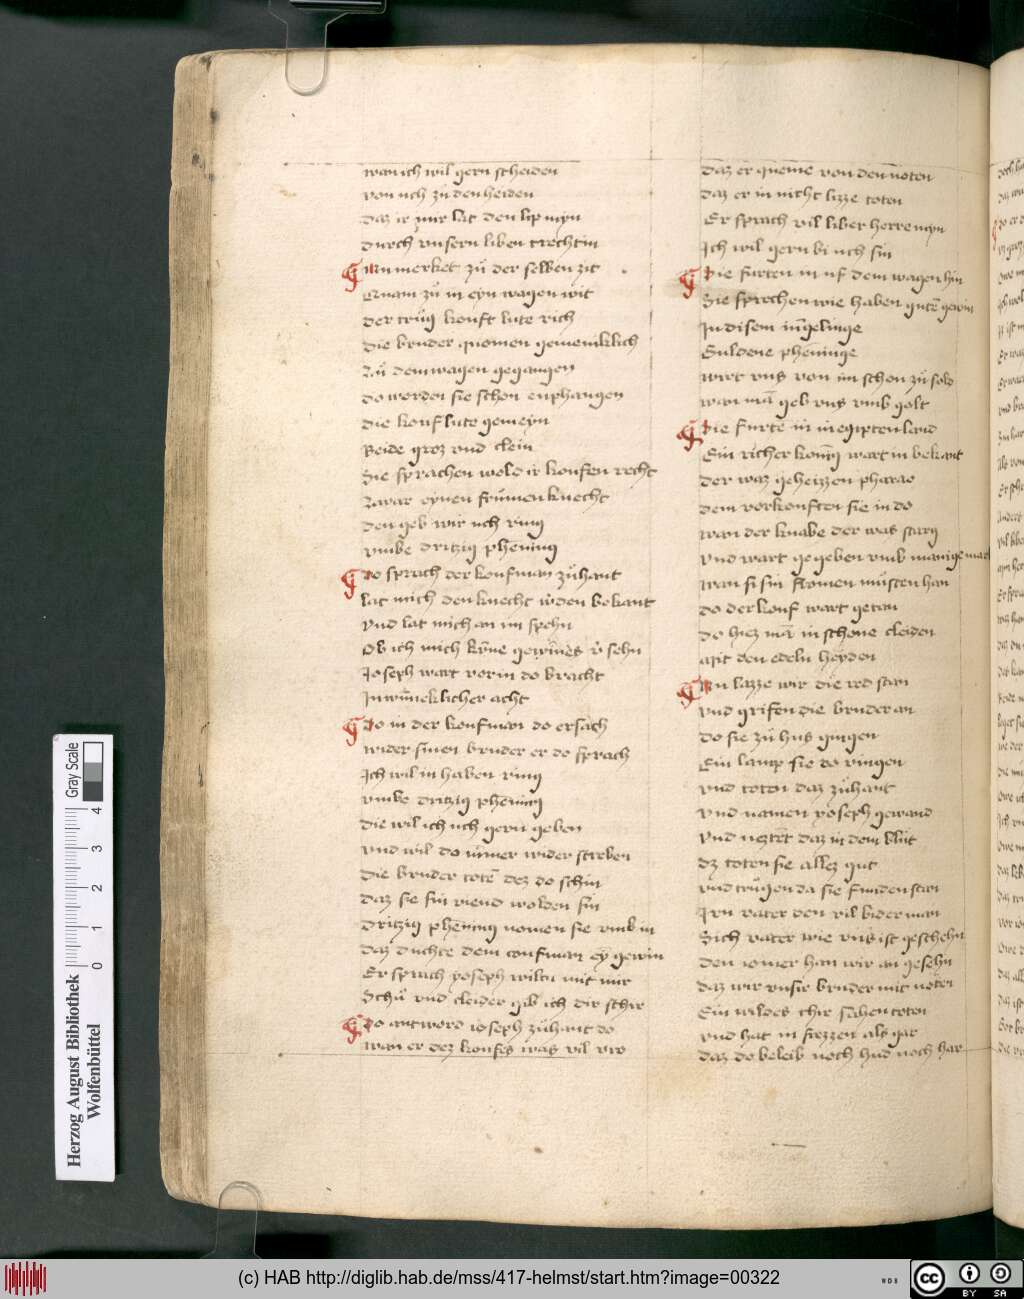 wan ich wil gern scheiden
von uch zů den heiden
daz ir mir lat den lip myn
durch unsern liben trechtin
Nu merket zů der selben zit
Quam zů in eyn wagen wit
der trůg kouft lute rich
die bruder quomen gemeinklich
Zů dem wagen gegangen
do worden sie schon enphangen
die kouf lute gemeyn
Beide groz vnd clein
Sie sprachen wolt ir koufen recht
Zwar eynen frůmen knecht
den geb wir uch ring
vmbe dritzig phening
Do sprach der koufman zůhant
lat mich den knecht w̓den bekant
vnd lat mich an im spehn
Ob ich mich kÿne gewīnes v̓ sehn
Joseph wart vor in do bracht
In wūneklicher acht
Do in der koufman do ersach
wider sinen bruder er do sprach
Ich wil in haben ring
vmbe dritzig phening
die wil ich uch gern geben
vnd wil do ūmer wider streben
die bruder totē dez do schin
daz sie sin viend wolden sin
dritzig phēing nomen sie vmb in
daz duchte dem coufman eÿ gewin
Er sprach yoseph wiltu mit mir
Schů vnd cleider gib ich dir schir
Do antword ioseph zůhant do
wan er dez koufes was vil vro
daz er queme von den noten
daz er in nicht lizze toten
Er sprach vil liber herre myn
Ich wil gern bi uch sin
Die furten in uf dem wagen hin
Sie sprochen wie haben gutē gewin
In disem iūgelinge
Guldene pheninge
wirt vns von im schon zů solt
wan mā geb vns vmb golt
Die furtē in in egiptenland
Ein richer konīg wart in bekant
der waz geheizzen pharao
dem vorkouften sie in do
wan der knabe der was starg
vnd wart gegeben vmb manige marc
wan si sin fromen můsten han
do der kouf wart getan
do hiez mā in schone cleiden
Mit den edeln heyden
Nu lazze wir die red stan
vnd grifen die bruder an
do sie zů hus gingen
Ein lamp sie do vingen
vnd toten daz zůhant
vnd namen yoseph gewand
vnd nectēt daz in dem blůt
dz toten sie allez gut
vnd trůgen da sie funden stan
Irn vater den vil bider man
Sich vater wie vns ist geschehn
den iomer han wir an gesehn
daz wir vnsir bruder mit noten
Ein wildes thir sahen toten
vnd hat in frezzen als gar
daz do beleib noch hud noch har
Herzog August Bibliothek
Wolfenbüttel
0 1 2 3 4
Gray Scale
(c) HAB http://diglib.hab.de/mss/417-helmst/start.htm?image=00322
WDB
cc BY SA